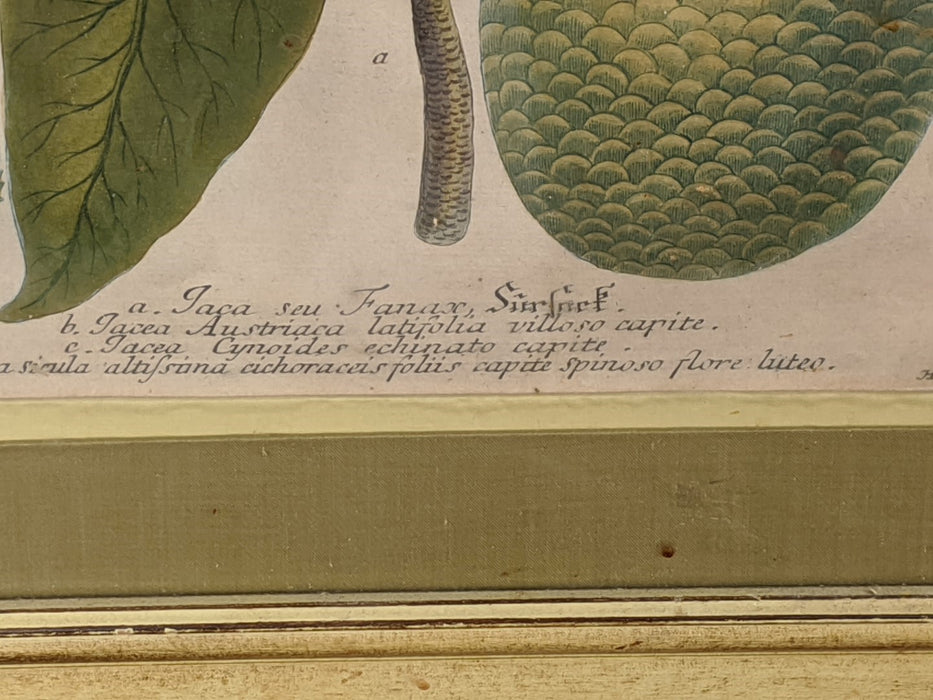 a
a. Jaca seu Fanax, Sürsack.
b. Jacea Austriaca latifolia villoso capite.
c. Jacea Cynoides echinato capite.
a sicula altissima cichoraceis foliis capite spinoso flore luteo.
H